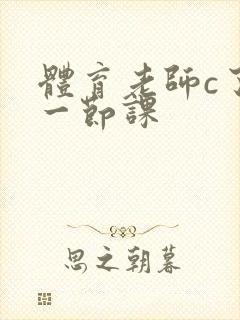 體育老師c了
一節課
思之朝暮